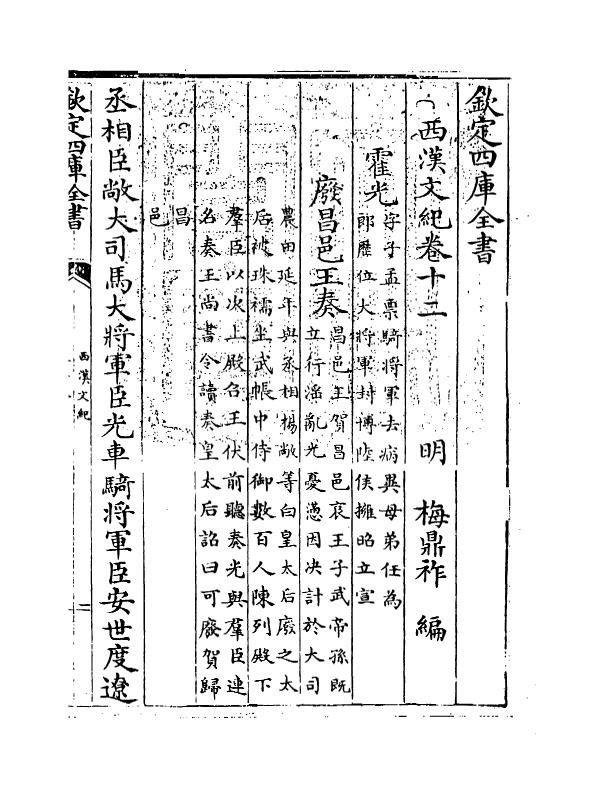 欽定四庫全書
西漢文紀卷十二 明 梅鼎祚 編
霍光字子孟票騎將軍去病異母弟任為
郎歷位大將軍封博陸侯擁昭立宣
廢昌邑王奏昌邑王賀昌邑哀王子武帝孫既
立行淫亂光憂懣因決計於大司
農田延年與丞相楊敞等白皇太后廢之太
后被珠襦坐武帳中侍御數百人陳列殿下
羣臣以次上殿召王伏前聽奏光與羣臣連
名奏王尚書令讀奏皇太后詔曰可廢賀歸
昌
邑
丞相臣敞大司馬大將軍臣光車騎將軍臣安世度遼
欽定四庫全書
西漢文紀
二